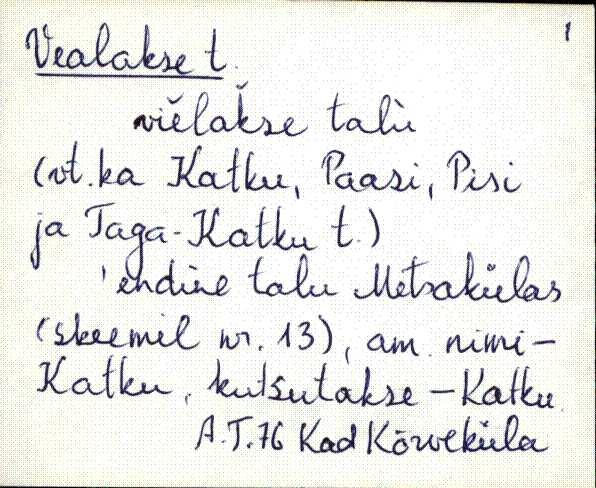 1
Vealakse t.
viĕlaǩse talù
(vt. ka Katku, Paasi, Pisi
ja Taga-Katku t.)
'endine talu Metsakülas
(skeemil nr. 13), am. nimi-
Katku, kutsutakse - Katku.
A.T.76 Kad Kõrveküla